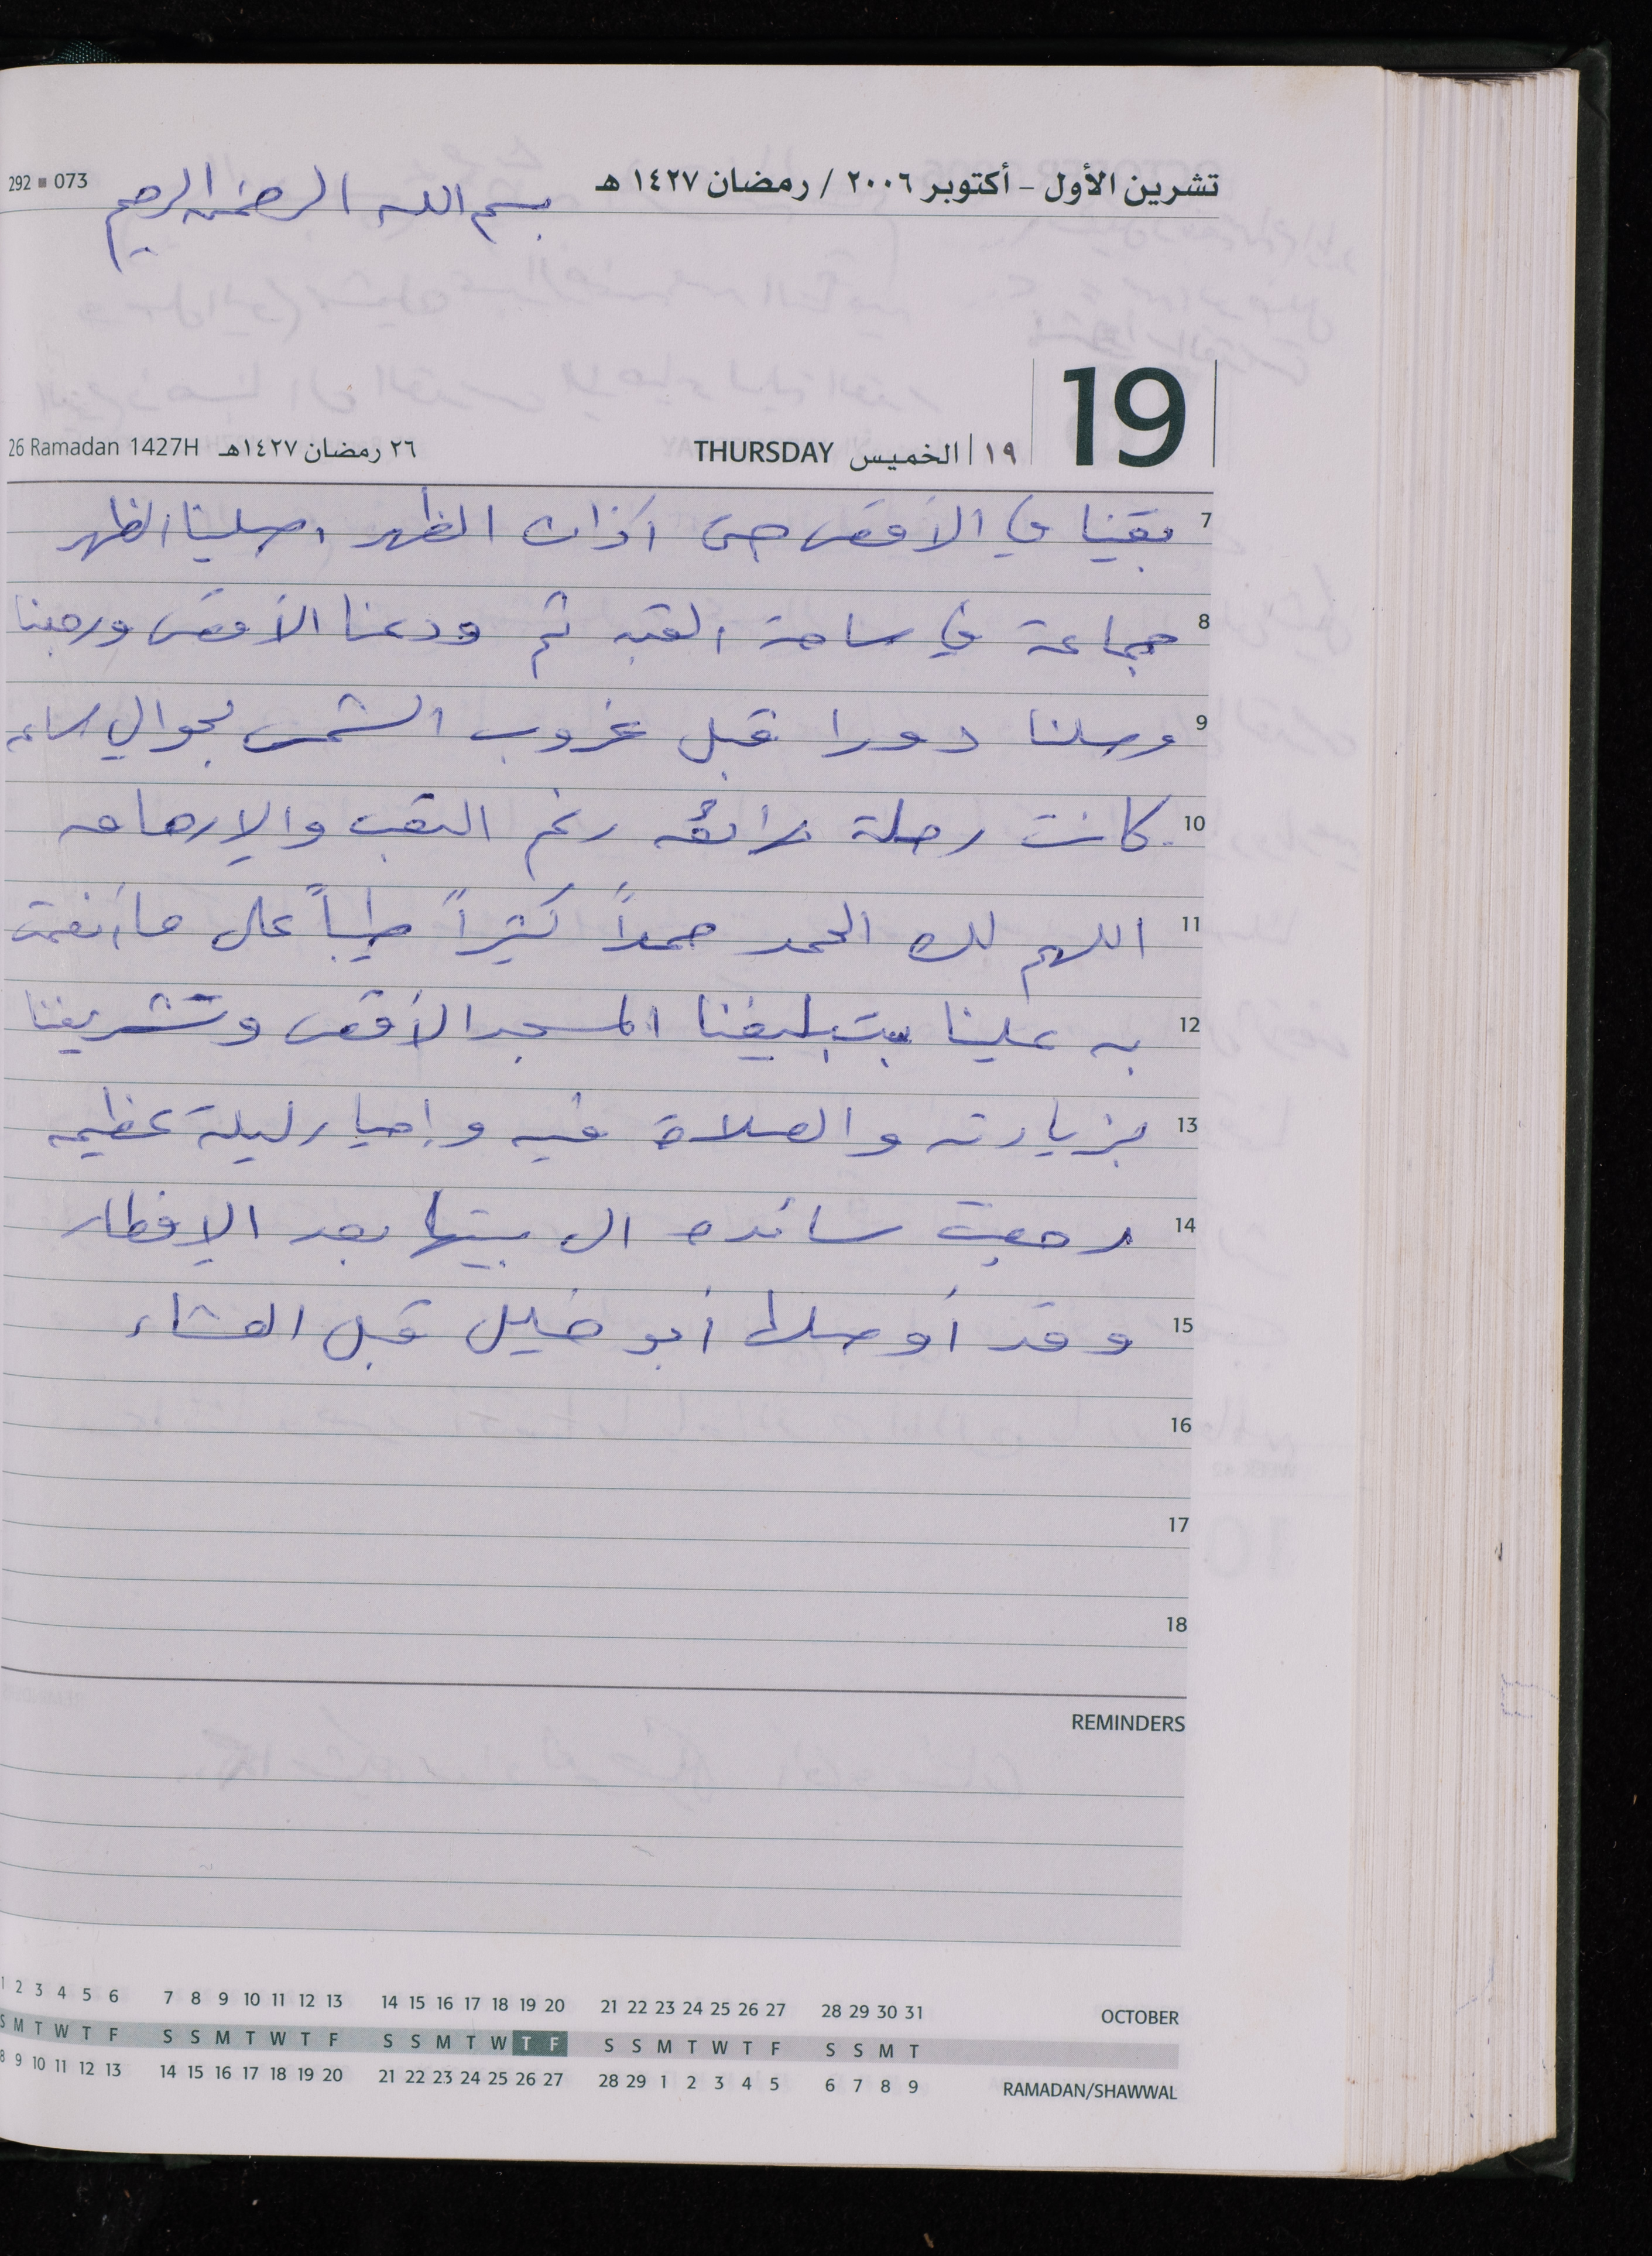 تشرين الأول - أكتوبر ٢٠٠٦ / رمضان ١٤٢٧ هـ
بسم الله الرحمن الرحيم
292 ■ 073
19
١٩ الخميس THURSDAY
٢٦ رمضان ١٤٢٧هـ 26 Ramadan 1427H
7 بقينا في الأقصى حتى أذان الظهر وصلينا الظهر
8 جماعة في ساحة القبه ثم ودعنا الأقصى ورجعنا
9 وصلنا دورا قبل غروب الشمس بحوالي ساعه
10 كانت رحلة رائعه رغم التعب والإرهاق
11 اللهم لك الحمد حمداً كثيراً طيباً على ما أنعمت
12 به علينا بتبليغنا المسجد الأقصى وتشريفنا
13 بزيارته والصلاة فيه وإحياء ليلة عظيمه
14 رجعت سائده الى بيتها بعد الإفطار
15 وقد أوصلها أبو خليل قبل العشاء
16
17
18
REMINDERS
1 2 3 4 5 6 7 8 9 10 11 12 13 14 15 16 17 18 19 20 21 22 23 24 25 26 27 28 29 30 31 OCTOBER
S M T W T F S S M T W T F S S M T W T F S S M T W T F S S M T
8 9 10 11 12 13 14 15 16 17 18 19 20 21 22 23 24 25 26 27 28 29 1 2 3 4 5 6 7 8 9 RAMADAN/SHAWWAL